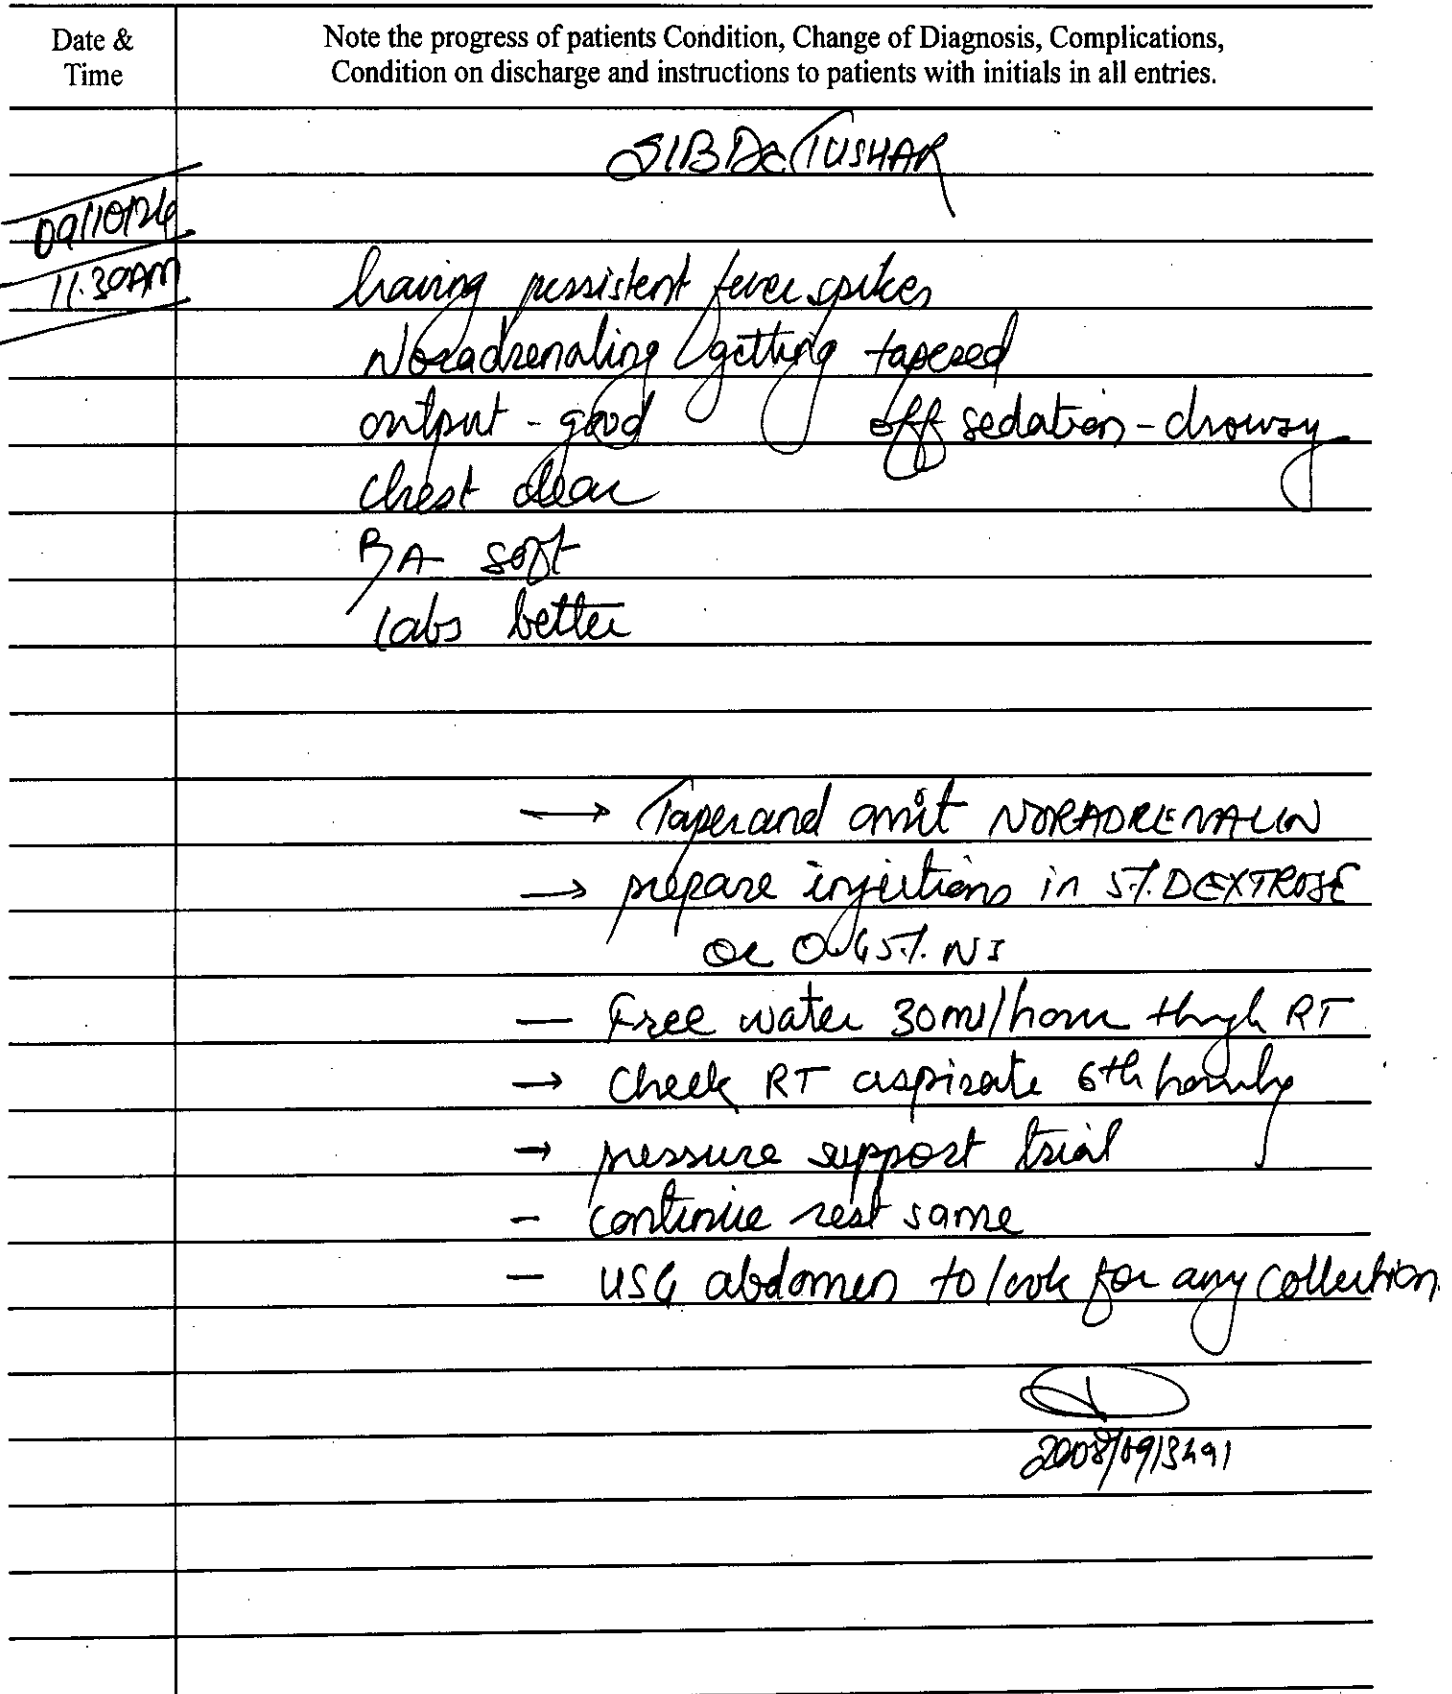 Date & Time
Note the progress of patients Condition, Change of Diagnosis, Complications,
Condition on discharge and instructions to patients with initials in all entries.
S/B Dr TUSHAR
09/10/24
11.30AM
having persistent fever spikes
Noradrenaling getting tapered
output - good off sedation - drowsy
chest clear
P/A soft
labs better
→ Taper and omit NORADRENALIN
→ prepare injections in 5% DEXTROSE
or 0.45% NS
— Free water 30ml/hour through RT
→ Check RT aspirate 6th hourly
→ pressure support trial
- continue rest same
- USG abdomen to look for any collection.
2008/09/3491